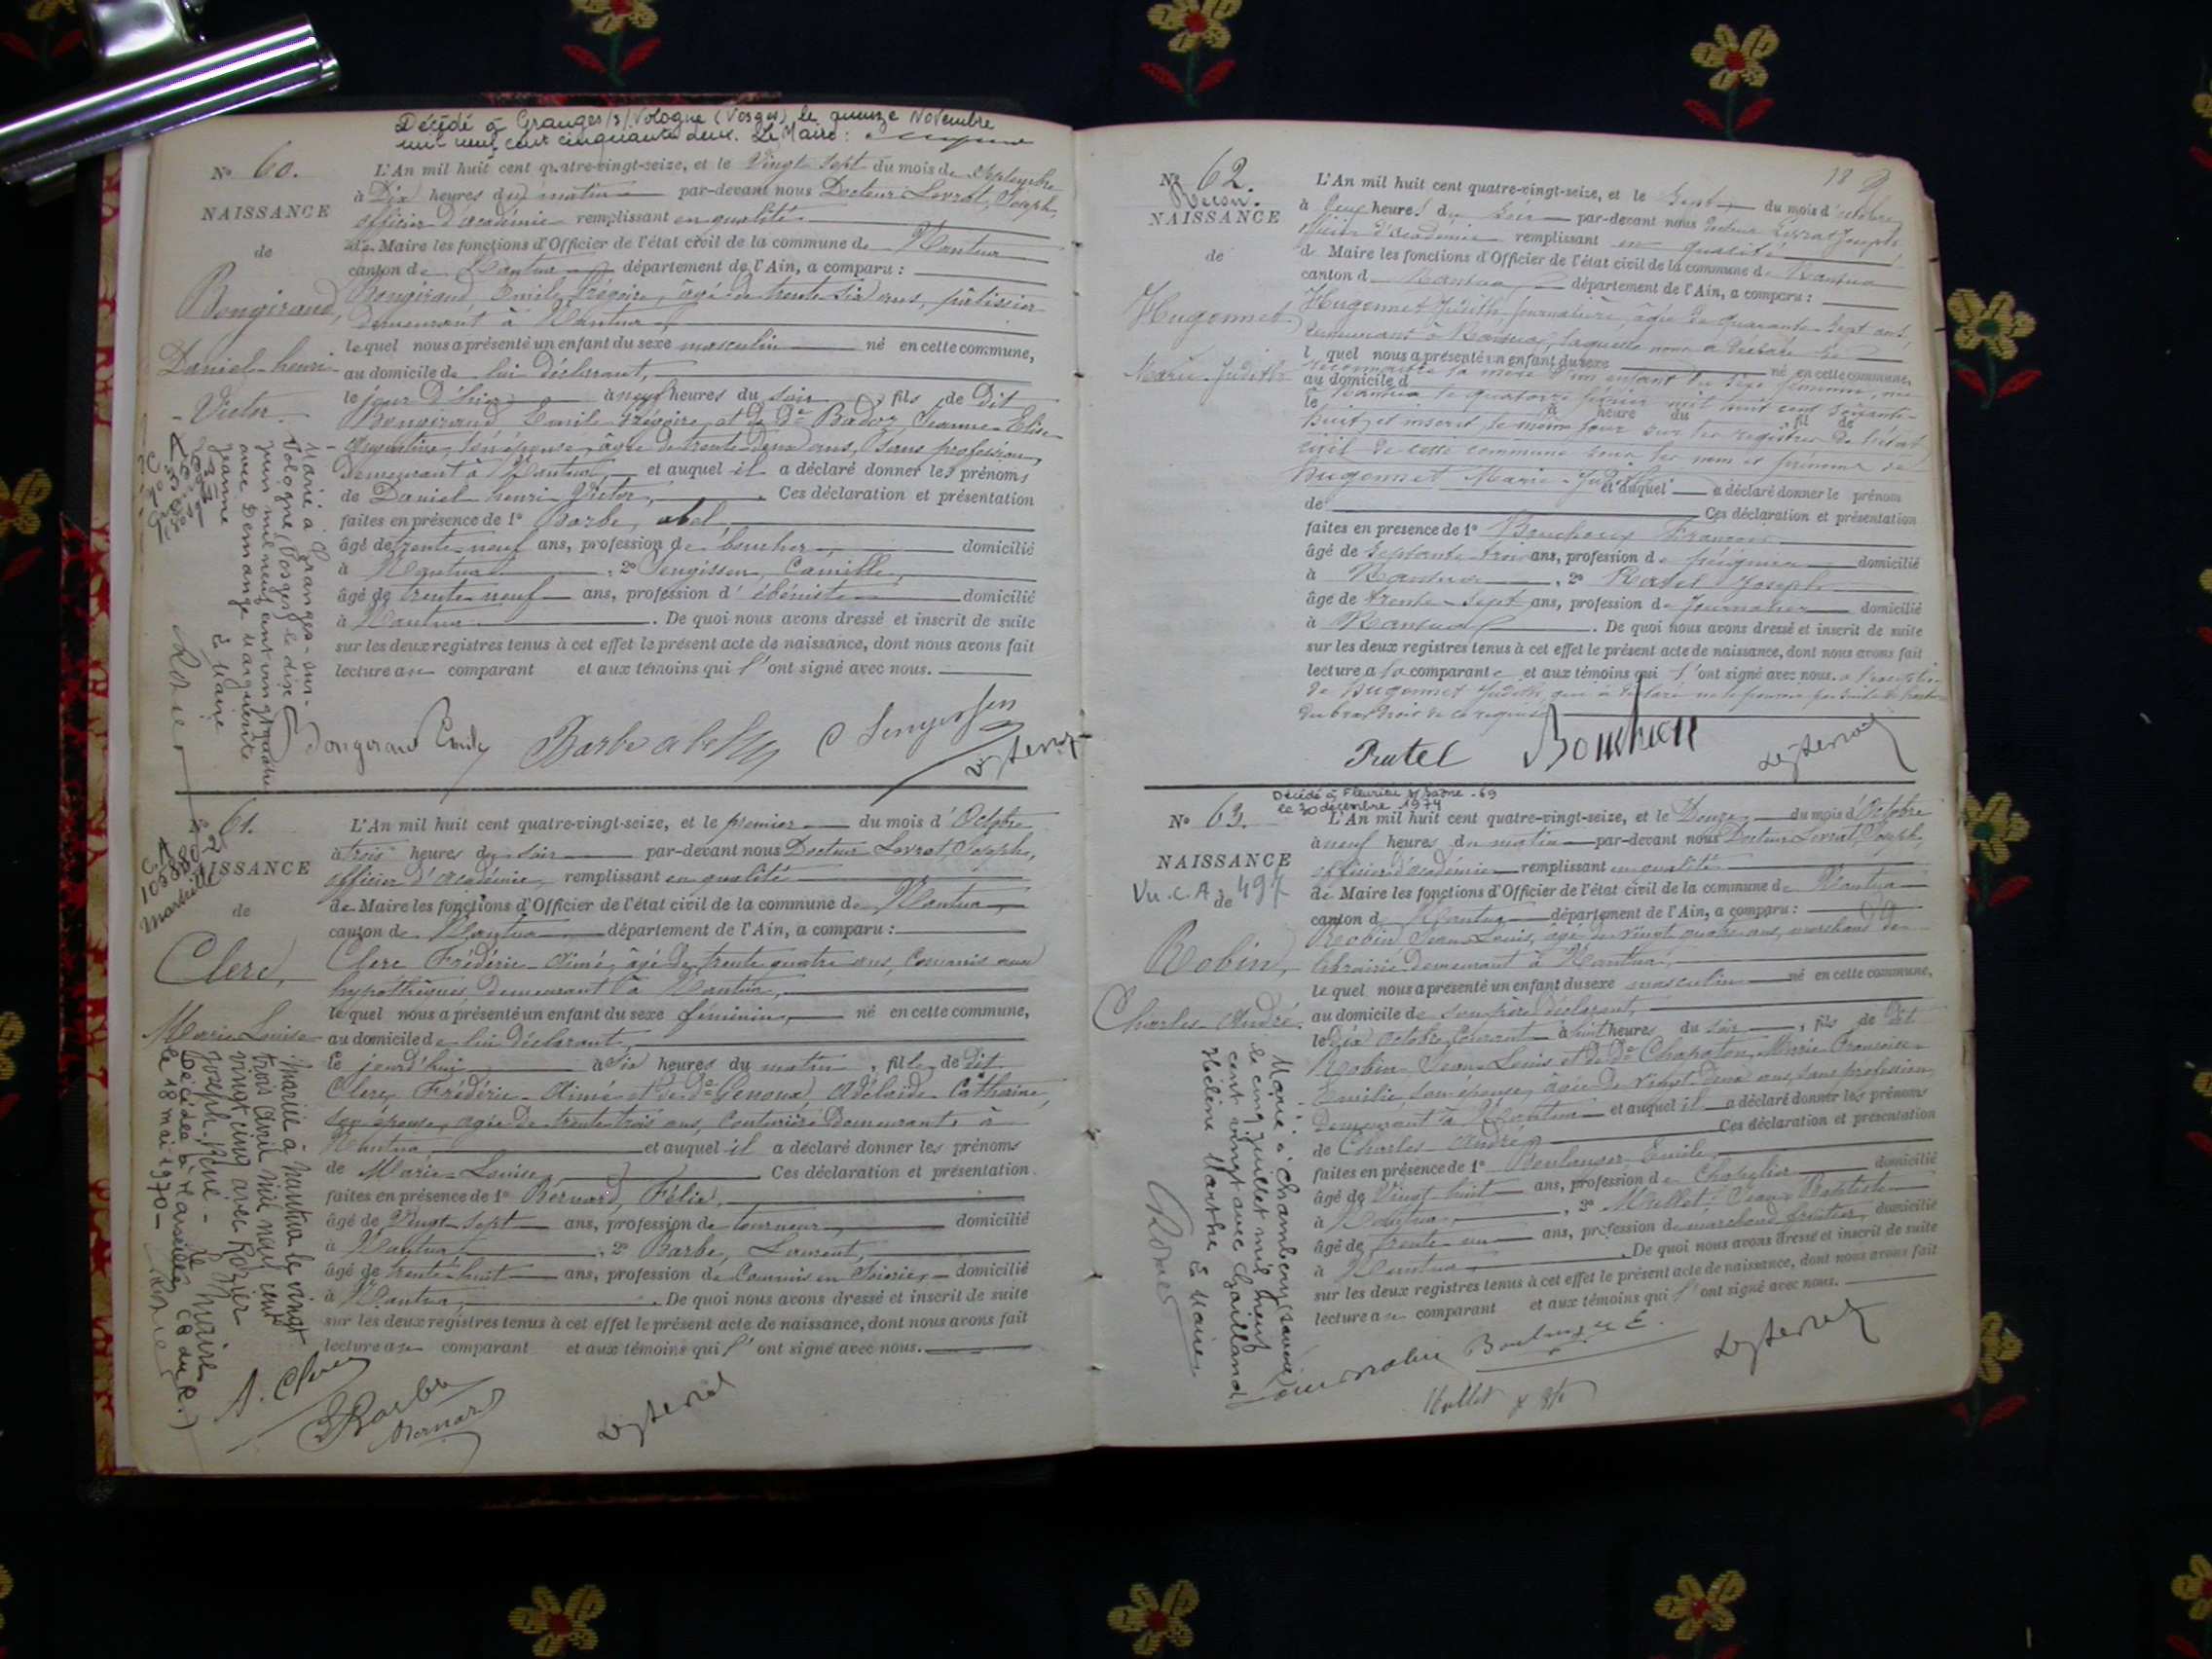 Décédé à Granges/s/Vologne (Vosges), le quinze Novembre
mil neuf cent cinquante deux. Le Maire:
N° 60.
NAISSANCE
de
Bongiraud,
Daniel-henri-
Victor.
L'An mil huit cent quatre-vingt-seize, et le Vingt Sept du mois de Septembre
à Dix heures du matin par-devant nous Docteur Levrat, Joseph,
officier d'académie remplissant en qualité
de Maire les fonctions d'Officier de l'état civil de la commune de Nantua
canton de Nantua département de l'Ain, a comparu :
Bongiraud, Emile Grégoire, âgé de trente six ans, pâtissier
demeurant à Nantua,
lequel nous a présenté un enfant du sexe masculin né en cette commune,
au domicile de lui déclarant,
le jour d'hier à neuf heures du soir, fils de Dit
Bongiraud Emile Grégoire et de De Badoz, Jeanne-Elise-
son épouse, âgée de trente deux ans, sans profession,
Demeurant à Nantua, et auquel il a déclaré donner les prénoms
de Daniel henri Victor, Ces déclaration et présentation
faites en présence de 1° Barbe, abel,
âgé de trente-neuf ans, profession de boucher, domicilié
à Nantua, 2° Sengissen, Camille,
âgé de trente neuf ans, profession d'ébéniste domicilié
à Nantua. De quoi nous avons dressé et inscrit de suite
sur les deux registres tenus à cet effet le présent acte de naissance, dont nous avons fait
lecture au comparant et aux témoins qui l'ont signé avec nous.
Marié à Granges-sur-
Vologne (Vosges) le dix
juin mil neuf cent vingt quatre
avec Demange Marguerite
Jeanne
Le Maire
Bongiraud Emile Barbe abel C Sengissen
N° 61.
NAISSANCE
de
Clerc,
Marie Louise
C.A
Marseille
L'An mil huit cent quatre-vingt-seize, et le premier du mois d'Octobre
à trois heures du soir par-devant nous Docteur Levrat, Joseph,
officier d'académie, remplissant en qualité
de Maire les fonctions d'Officier de l'état civil de la commune de Nantua,
canton de Nantua département de l'Ain, a comparu :
Clerc Frédéric-Aimé, âgé de trente quatre ans, Commis aux
hypothèques, demeurant à Nantua,
lequel nous a présenté un enfant du sexe féminin, né en cette commune,
au domicile de lui déclarant,
le jourd'hui à Six heures du matin, fille de Dit
Clerc, Frédéric-Aimé et de De Genoux, Adélaïde-Catherine,
son épouse, agée de trente trois ans, Couturière Demeurant à
Nantua et auquel il a déclaré donner les prénoms
de Marie-Louise, Ces déclaration et présentation
faites en présence de 1° Bernard, Félix,
âgé de Vingt-sept ans, profession de tourneur, domicilié
à Nantua, 2° Barbe, Laurent,
âgé de trente huit ans, profession de Commis en Soieries domicilié
à Nantua, De quoi nous avons dressé et inscrit de suite
sur les deux registres tenus à cet effet le présent acte de naissance, dont nous avons fait
lecture au comparant et aux témoins qui l'ont signé avec nous.
Mariée à Nantua le vingt
trois avril mil neuf cent
vingt cinq avec Rozier
Joseph-René - Le Maire
Décédée à Marseille
le 18 mai 1970 -
A. Clerc
L Barbe
Bernard
N° 62.
Recon.
NAISSANCE
de
Hugonnet
Marie-Judith
L'An mil huit cent quatre-vingt-seize, et le Sept du mois d'octobre
à Deux heures du Soir par-devant nous Docteur Levrat Joseph
officier d'académie remplissant en qualité
de Maire les fonctions d'Officier de l'état civil de la commune de Nantua
canton de Nantua département de l'Ain, a comparu :
Hugonnet Judith journalière, âgée de quarante-sept ans,
demeurant à Nantua, laquelle nous a déclaré se
l quel nous a présenté un enfant du sexe né en cette commune,
reconnaître la mère d'un enfant du sexe féminin, né
au domicile d
à Nantua le quatorze février mil huit cent soixante-
le à heure du fil de
huit, et inscrit le même jour sur les registres de l'état
civil de cette commune sous les nom et prénoms de
Hugonnet Marie-Judith
et auquel a déclaré donner le prénom
de Ces déclaration et présentation
faites en présence de 1° Bouchoux François
âgé de Septante trois ans, profession de peigneur domicilié
à Nantua, 2° Ratel Joseph
âgé de trente-sept ans, profession de Journalier domicilié
à Nantua. De quoi nous avons dressé et inscrit de suite
sur les deux registres tenus à cet effet le présent acte de naissance, dont nous avons fait
lecture a la comparante et aux témoins qui l'ont signé avec nous. à l'exception
de Hugonnet Judith, qui a déclaré ne le pouvoir par suite de fracture
du bras droit de ce requise
Ratel Bouchoux
Décédé à Fleurieu s/ Saône - 69
le 30 décembre 1974
N° 63.
NAISSANCE
Vu. C.A. de 497
Robin,
Charles André.
L'An mil huit cent quatre-vingt-seize, et le Douze du mois d'Octobre
à neuf heures du matin par-devant nous Docteur Levrat, Joseph,
officier d'académie remplissant en qualité
de Maire les fonctions d'Officier de l'état civil de la commune de Nantua
canton de Nantua département de l'Ain, a comparu :
Robin Jean-Louis, âgé de vingt quatre ans, marchand de
librairie demeurant à Nantua,
lequel nous a présenté un enfant du sexe masculin né en cette commune,
au domicile de son père déclarant,
le dix octobre courant à huit heures du soir, fils de Dit
Robin Jean-Louis et de De Chapaton, Marie Françoise-
Emilie, son épouse, âgée de vingt deux ans, sans profession,
Demeurant à Nantua et auquel il a déclaré donner les prénoms
de Charles-André, Ces déclaration et présentation
faites en présence de 1° Boulanger Emile,
âgé de Vingt huit ans, profession de Chapelier domicilié
à Nantua, 2° Mullet Jean-Baptiste
âgé de trente un ans, profession de marchand fruitier, domicilié
à Nantua. De quoi nous avons dressé et inscrit de suite
sur les deux registres tenus à cet effet le présent acte de naissance, dont nous avons fait
lecture au comparant et aux témoins qui l'ont signé avec nous.
Marié à Chambéry (Savoie)
le cinq juillet mil neuf
cent vingt avec Gailland
Hélène Marthe Le Maire
Boulanger E.
Mullet